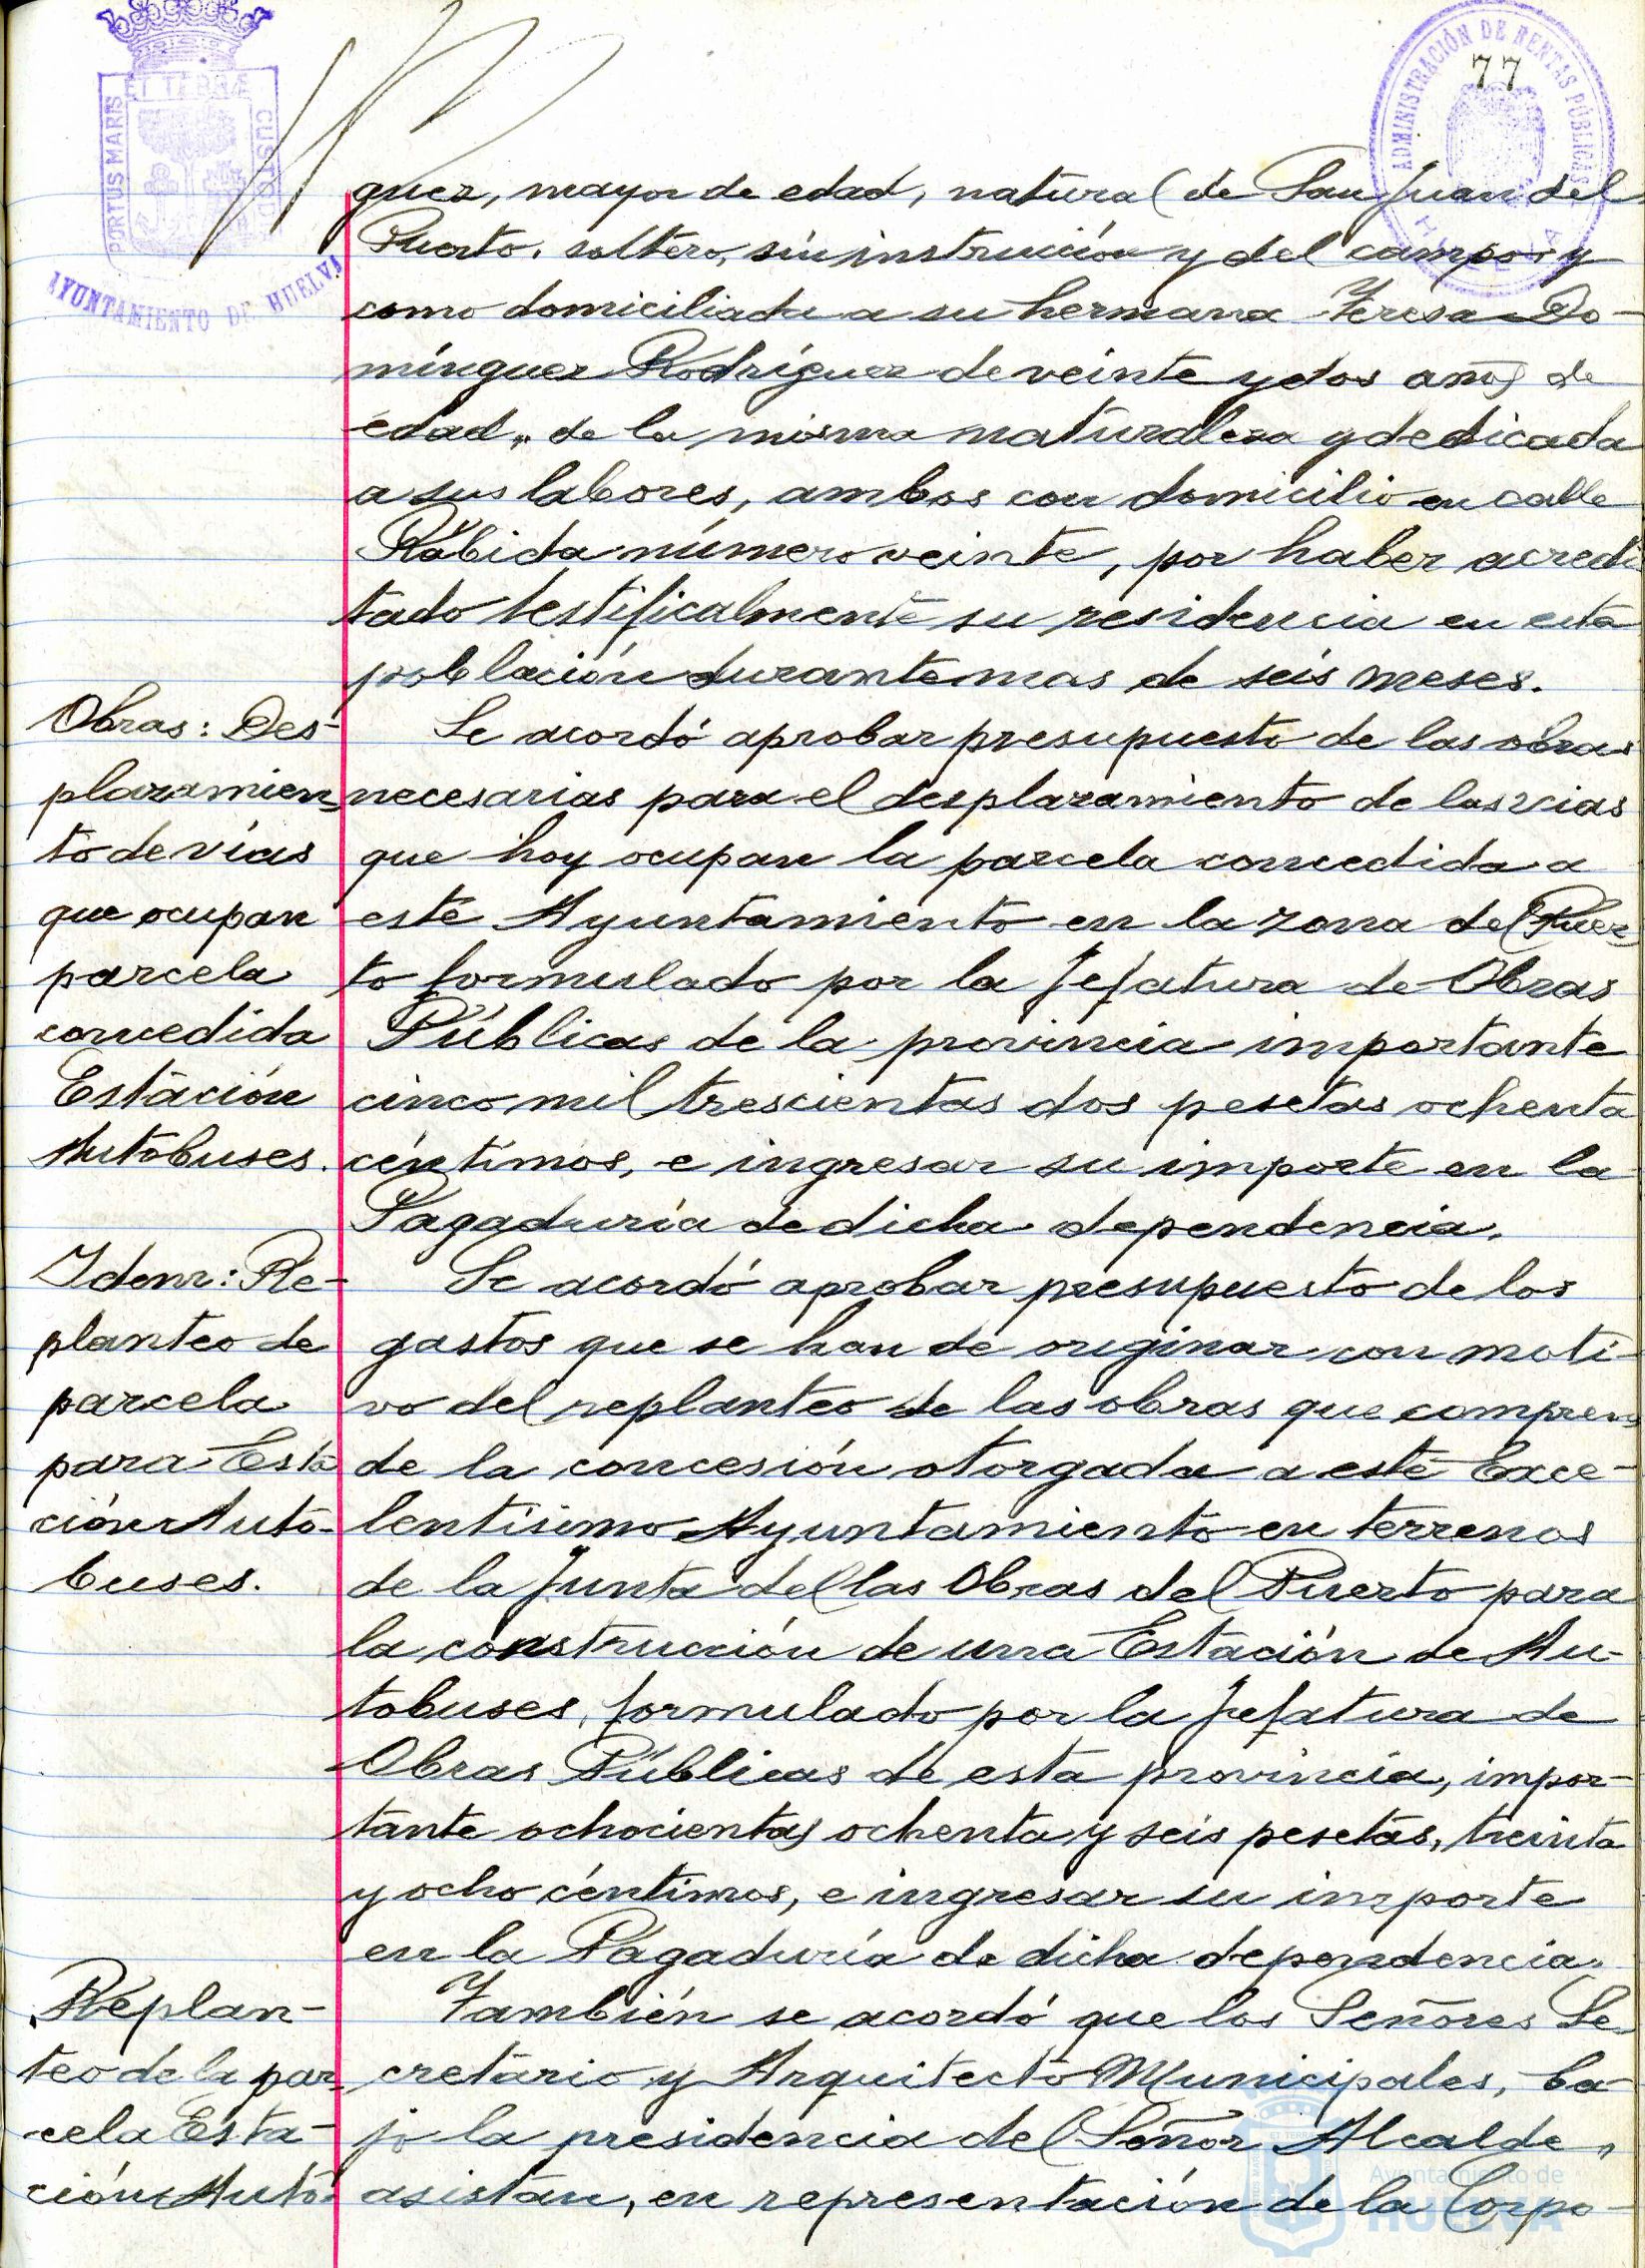 77
ET TERRÆ
PORTUS MARIS
CUSTODIA
AYUNTAMIENTO DE HUELVA
ADMINISTRACIÓN DE RENTAS PÚBLICAS
HUELVA
guez, mayor de edad, natural de San Juan del
Puerto, soltero, sin instrucción y del campo y
como domiciliada a su hermana Teresa Do-
mínguez Rodríguez de veinte y dos años de
edad, de la misma naturaleza y dedicada
a sus labores, ambos con domicilio en calle
Rábida número veinte, por haber acredi
tado testificalmente su residencia en esta
población durante mas de seis meses.
Obras: Des-
plazamien-
to de vías
que ocupan
parcela
concedida
Estación
Autobuses.
Se acordó aprobar presupuesto de las obras
necesarias para el desplazamiento de las vias
que hoy ocupan la parcela concedida a
este Ayuntamiento en la zona del Puer-
to formulado por la Jefatura de Obras
Públicas de la provincia importante
cinco mil trescientas dos pesetas ochenta
céntimos, e ingresar su importe en la
Pagaduría de dicha dependencia.
Idem: Re-
planteo de
parcela
para Esta
ción Auto-
buses.
Se acordó aprobar presupuesto de los
gastos que se han de originar con moti-
vo del replanteo de las obras que compren-
de la concesión otorgada a este Exce-
lentísimo Ayuntamiento en terrenos
de la Junta del las Obras del Puerto para
la construcción de una Estación de Au-
tobuses, formulado por la Jefatura de
Obras Públicas de esta provincia, impor-
tante ochocientas ochenta y seis pesetas, treinta
y ocho céntimos, e ingresar su importe
en la Pagaduría de dicha dependencia.
Replan-
teo de la par-
cela Esta-
ción Auto-
También se acordó que los Señores Se-
cretario y Arquitecto Municipales, ba-
jo la presidencia del Señor Alcalde,
asistan, en representación de la Corpo-
Ayuntamiento de
HUELVA